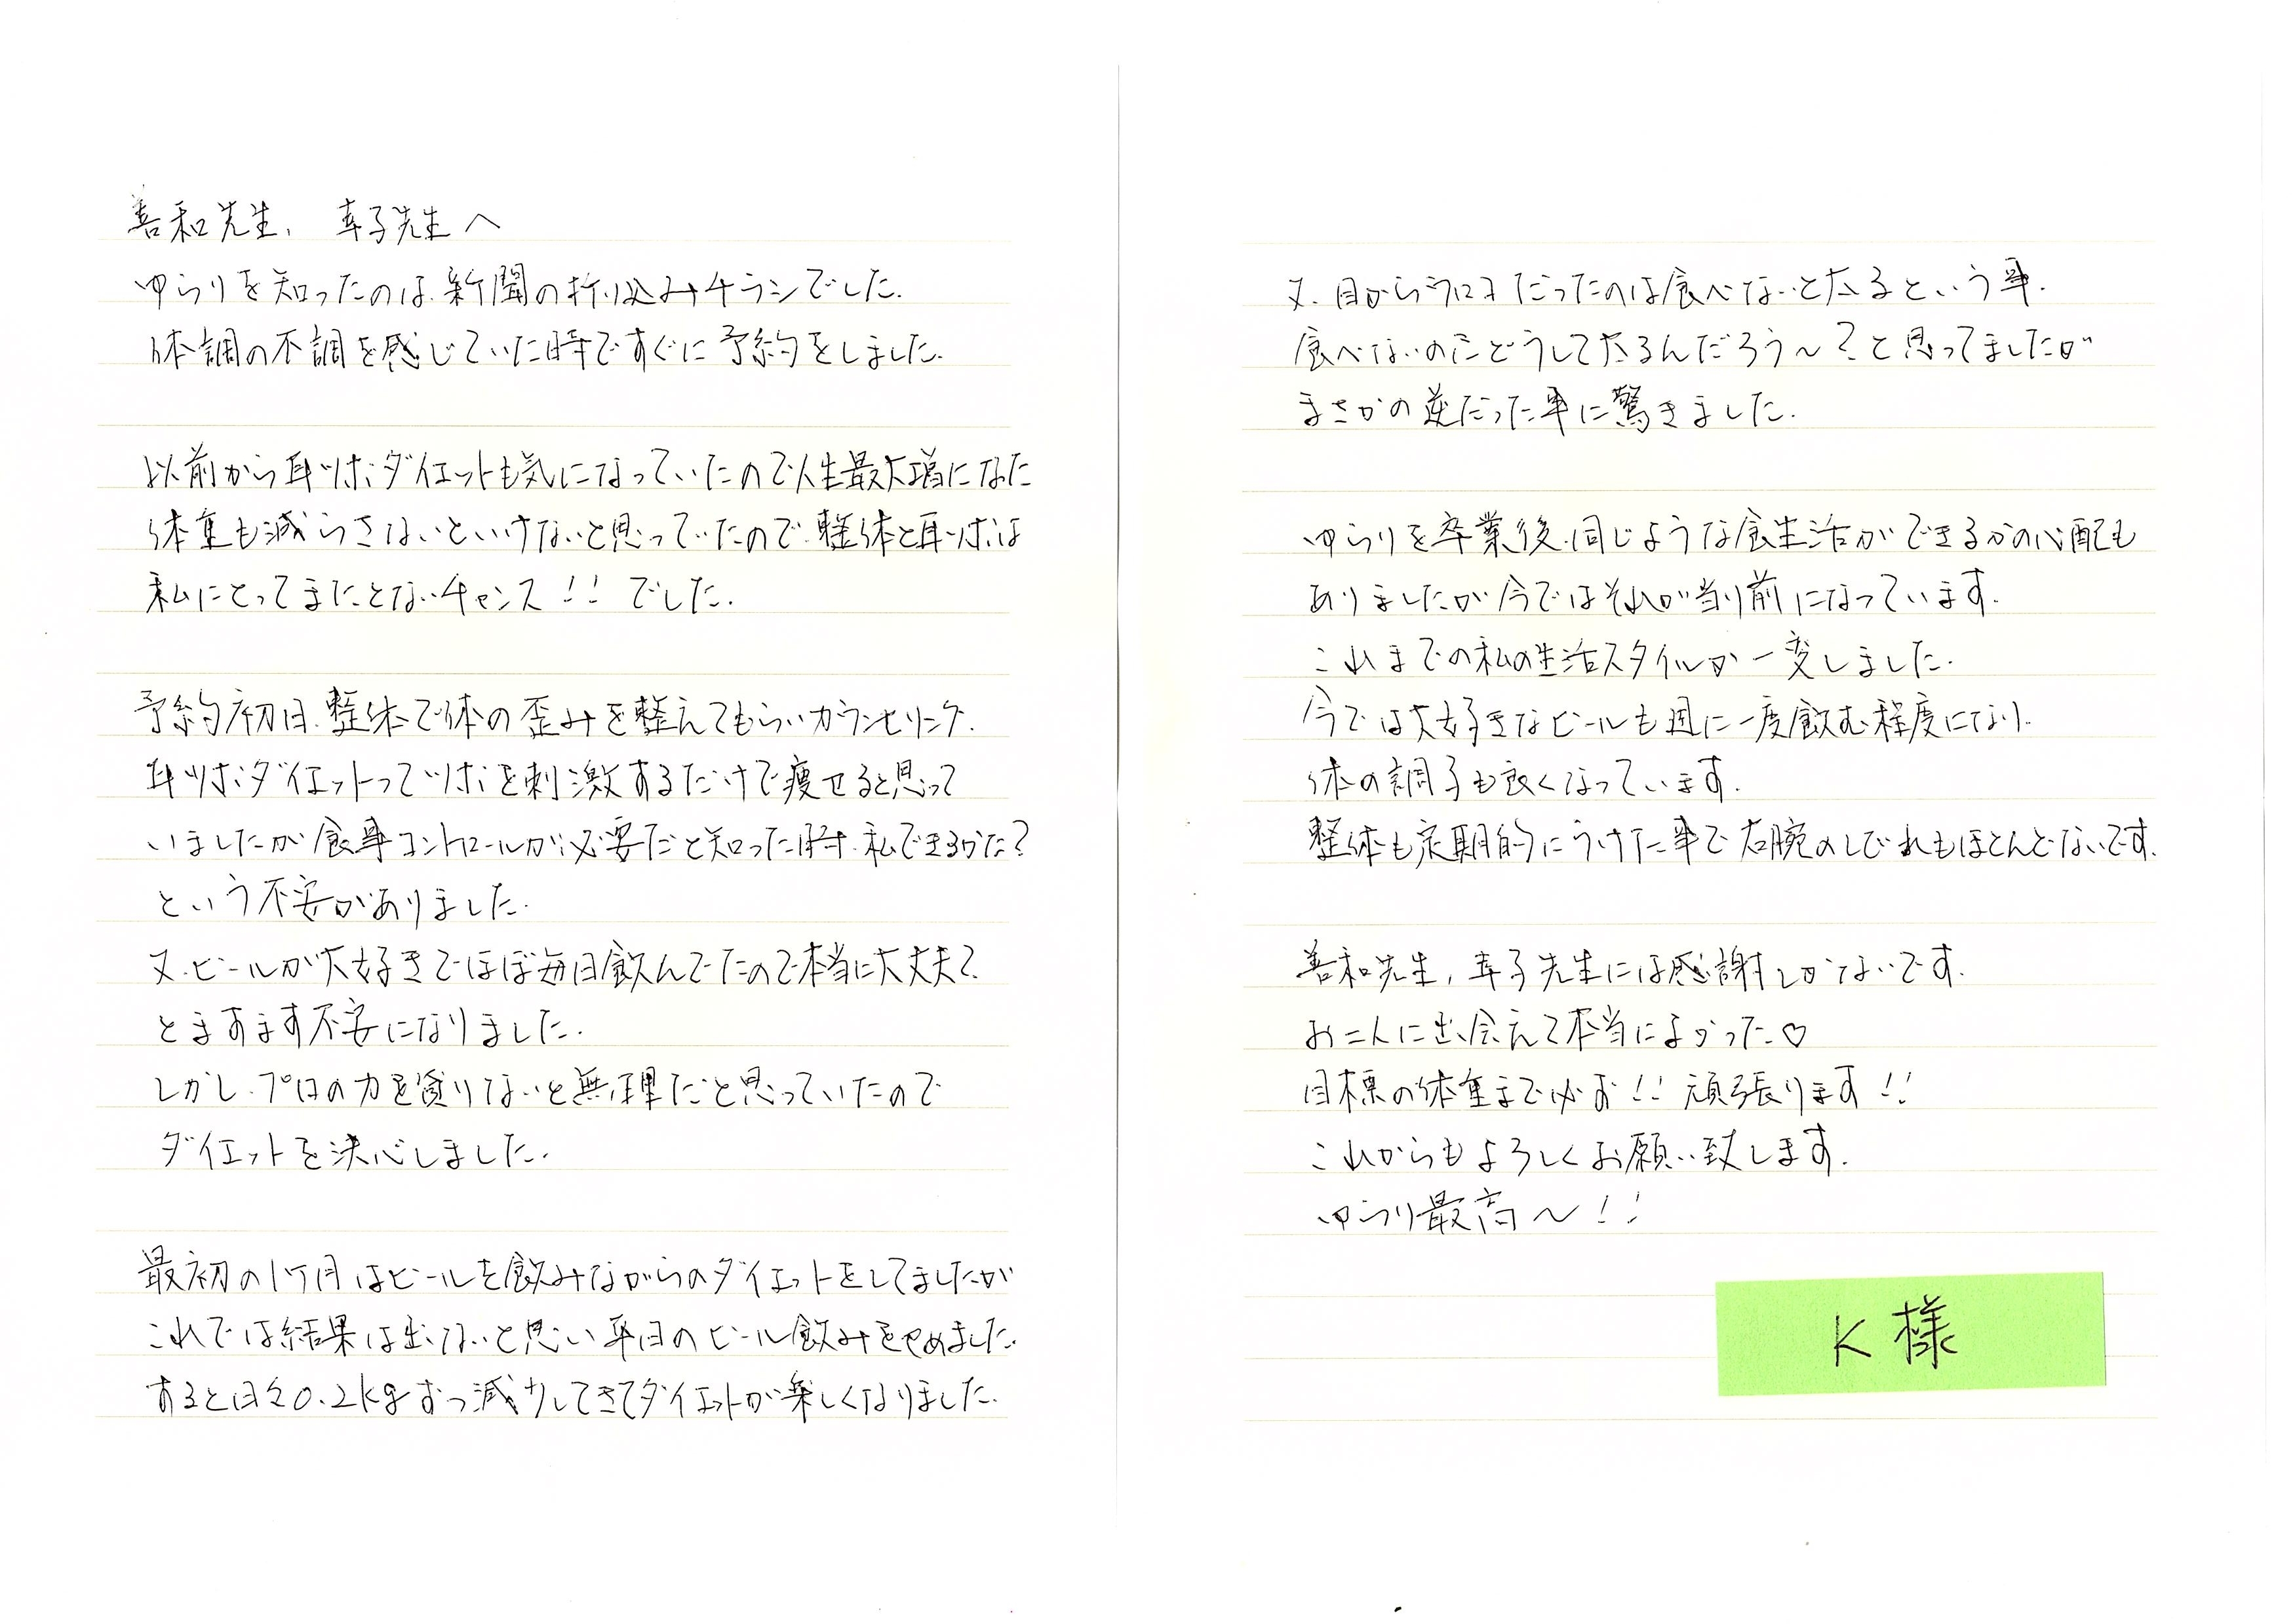 善和先生、幸子先生へ
ゆらりを知ったのは、新聞の折り込みチラシでした。
体調の不調を感じていた時ですぐに予約をしました。
以前から耳ツボダイエットも気になっていたので人生最大増になった
体重も減らさないといけないと思っていたので、整体と耳ツボは
私にとってまたとないチャンス!!でした。
予約初日、整体で体の歪みを整えてもらいカウンセリング。
耳ツボダイエットってツボを刺激するだけで痩せると思って
いましたが食事コントロールが必要だと知った時、私できるかな?
という不安がありました。
又、ビールが大好きでほぼ毎日飲んでたので本当に大丈夫?
とますます不安になりました。
しかし、プロの力を借りないと無理だと思っていたので
ダイエットを決心しました。
最初の1ケ月はビールを飲みながらのダイエットをしてましたが
これでは結果は出ないと思い平日のビール飲みをやめました。
すると日々0.2kgずつ減少してきてダイエットが楽しくなりました。
又、目からウロコだったのは食べないと太るという事。
食べないのにどうして太るんだろう〜?と思ってましたが
まさかの逆だった事に驚きました。
ゆらりを卒業後、同じような食生活ができるかの心配も
ありましたが今ではそれが当り前になっています。
これまでの私の生活スタイルが一変しました。
今では大好きなビールも週に一度飲む程度になり、
体の調子も良くなっています。
整体も定期的にうけた事で右腕のしびれもほとんどないです。
善和先生、幸子先生には感謝しかないです。
お二人に出会えて本当によかった♡
目標の体重まで必ず!!頑張ります!!
これからもよろしくお願い致します。
ゆらり最高〜!!
K様